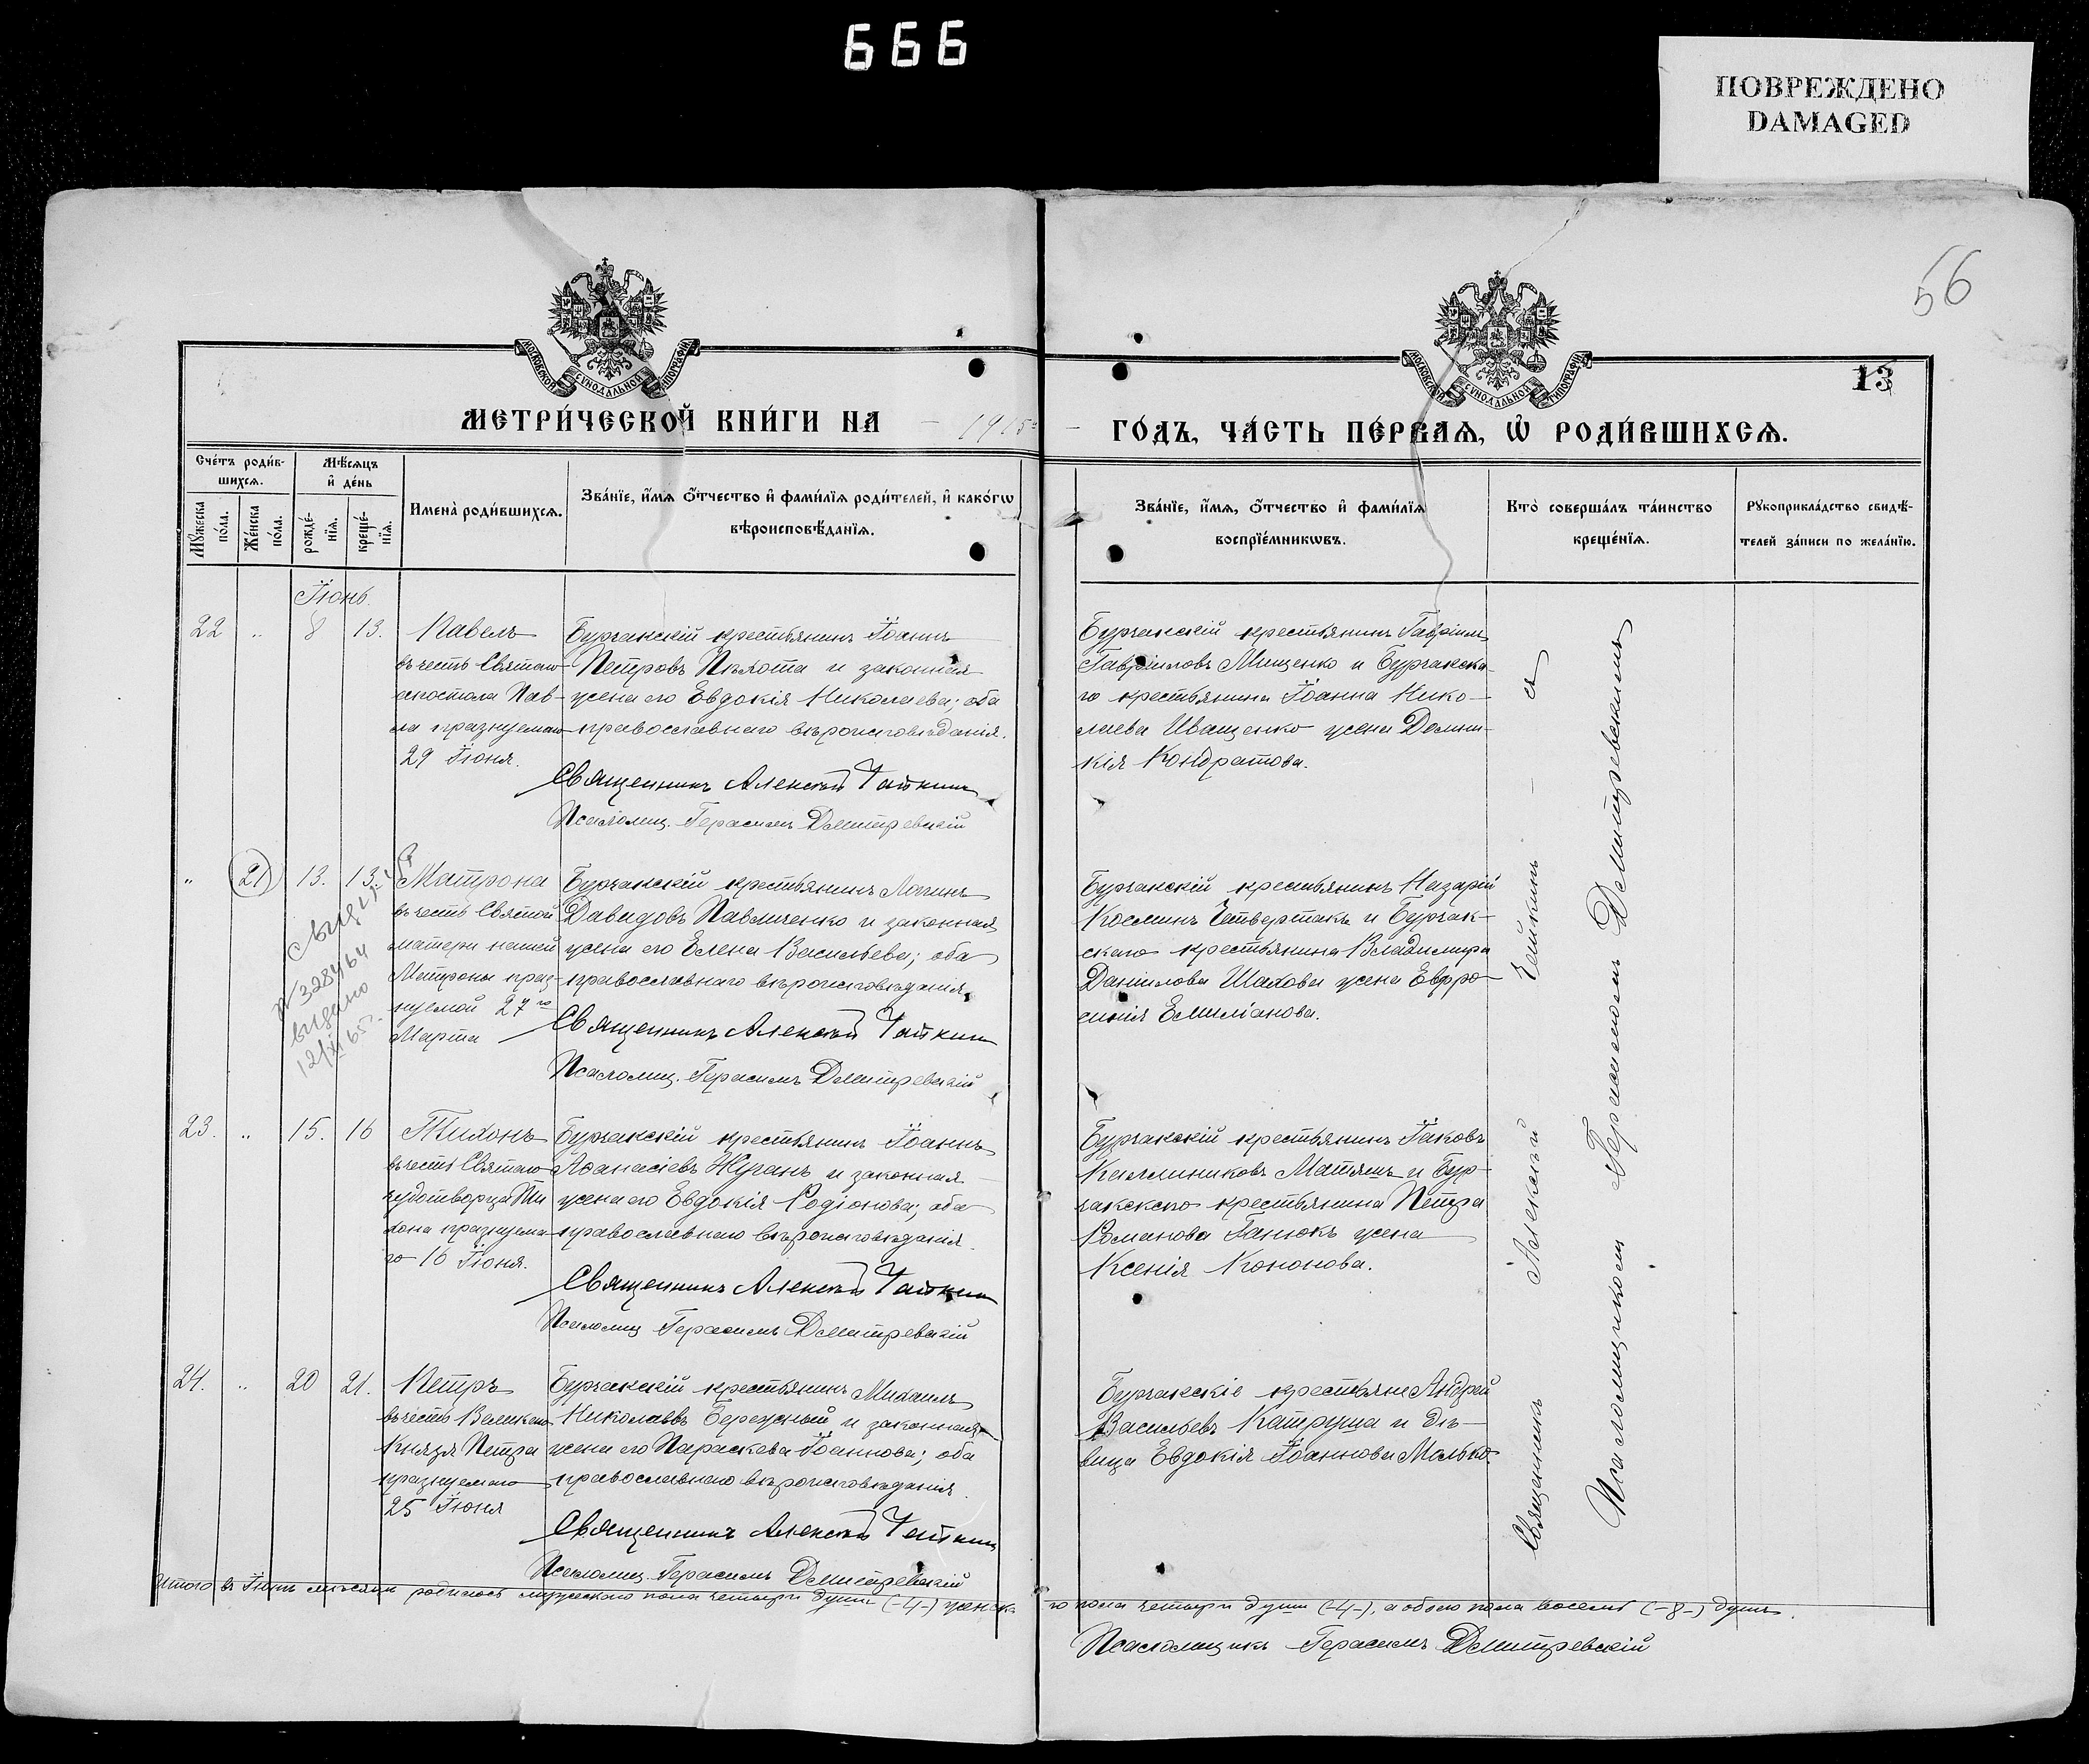 666
ПОВРЕЖДЕНО
DAMAGED
56
13
МОСКОВСКОЙ СѴНОДАЛЬНОЙ ТИПОГРАФІИ
МОСКОВСКОЙ СѴНОДАЛЬНОЙ ТИПОГРАФІИ
МЕТРИ́ЧЕСКОЙ КНИ́ГИ НА – 1915 – ГО́ДЪ, ЧА́СТЬ ПЕ́РВАѦ, Ѡ҆ РОДИ́ВШИХСѦ.
Сче́тъ роди́в-
шихсѧ.
Мꙋжеска
по́ла.
Же́нска
по́ла.
Мѣ́сѧцъ
и҆ де́нь
рожде́-
нїѧ.
креще́-
нїѧ.
Имена̀ роди́вшихсѧ.
Зва́нїе, и҆́мѧ ѻ҆́тчество и҆ фами́лїѧ роди́телей, и҆ како́гѡ
вѣроисповѣ́данїѧ.
Зва́нїе, и҆́мѧ, ѻ҆́тчество и҆ фами́лїѧ
воспрїе́мникѡвъ.
Кто̀ соверша́лъ та́инство
креще́нїѧ.
Рꙋкоприкла́дство свидѣ́-
телей за́писи по жела́нїю.
Іюнь.
22 „ 8 13.
Павелъ
въ честь Святаго
апостола Пав-
ла празнуемаго
29 Іюня.
Бурчакскій крестьянинъ Іоаннъ
Петровъ Пѣхота и законная
жена его Евдокія Николаева; оба
православнаго вѣроисповѣданія.
Священникъ Алексѣй Чайкинъ
Псаломщ. Герасимъ Дмитревскій
Бурчакскій крестьянинъ Гавріилъ
Гавріиловъ Мищенко и Бурчакска-
го крестьянина Іоанна Нико-
лаева Иващенко жена Домни-
кія Кондратова.
„ 21 13. 13.
№ 328464
выдано
12/XI 65 г.
Матрона
въ честь Святой
матери нашей
Матроны праз-
нуемой 27го
Марта
Бурчакскій крестьянинъ Логинъ
Давидовъ Павличенко и законная
жена его Елена Васильева; оба
православнаго вѣроисповѣданія.
Священникъ Алексѣй Чайкинъ
Псаломщ. Герасимъ Дмитревскій
Бурчакскій крестьянинъ Назарій
Косминъ Четвертакъ и Бурчак-
скаго крестьянина Владимира
Даніилова Шахова жена Евфро-
синія Емиліанова.
23. „ 15. 16
Тихонъ
въ честь Святаго
чудотворца Ти
хона празнуема
го 16 Іюня.
Бурчакскій крестьянинъ Іоаннъ
Аѳанасіевъ Жуганъ и законная
жена его Евдокія Родіонова; оба
православнаго вѣроисповѣданія.
Священникъ Алексѣй Чайкинъ
Псаломщ Герасимъ Дмитревскій
Бурчакскій крестьянинъ Іаковъ
Каллиниковъ Матяшъ и Бур-
чакскаго крестьянина Петра
Романова Ганюкъ жена
Ксенія Кононова.
24. „ 20 21.
Петръ
въ честь Великаго
Князя Петра
празнуемаго
25 Іюня
Бурчакскій крестьянинъ Михаилъ
Николаевъ Бережный и законная
жена его Параскева Іоаннова; оба
православнаго вѣроисповѣданія.
Священникъ Алексѣй Чайкинъ
Псаломщ. Герасимъ Дмитревскій
Бурчакскіе крестьяне Андрей
Васильевъ Катруша и дѣ-
вица Евдокія Іоаннова Малько.
Священникъ Алексѣй Чайкинъ – съ
Псаломщикомъ Герасимомъ Дмитревскимъ
Итого въ Іюнѣ мѣсяцѣ родилось мужескаго пола четыри души (-4-) женска го пола четыри души (-4-), а обоего пола восемь (-8-) душъ.
Псаломщикъ Герасимъ Дмитревскій